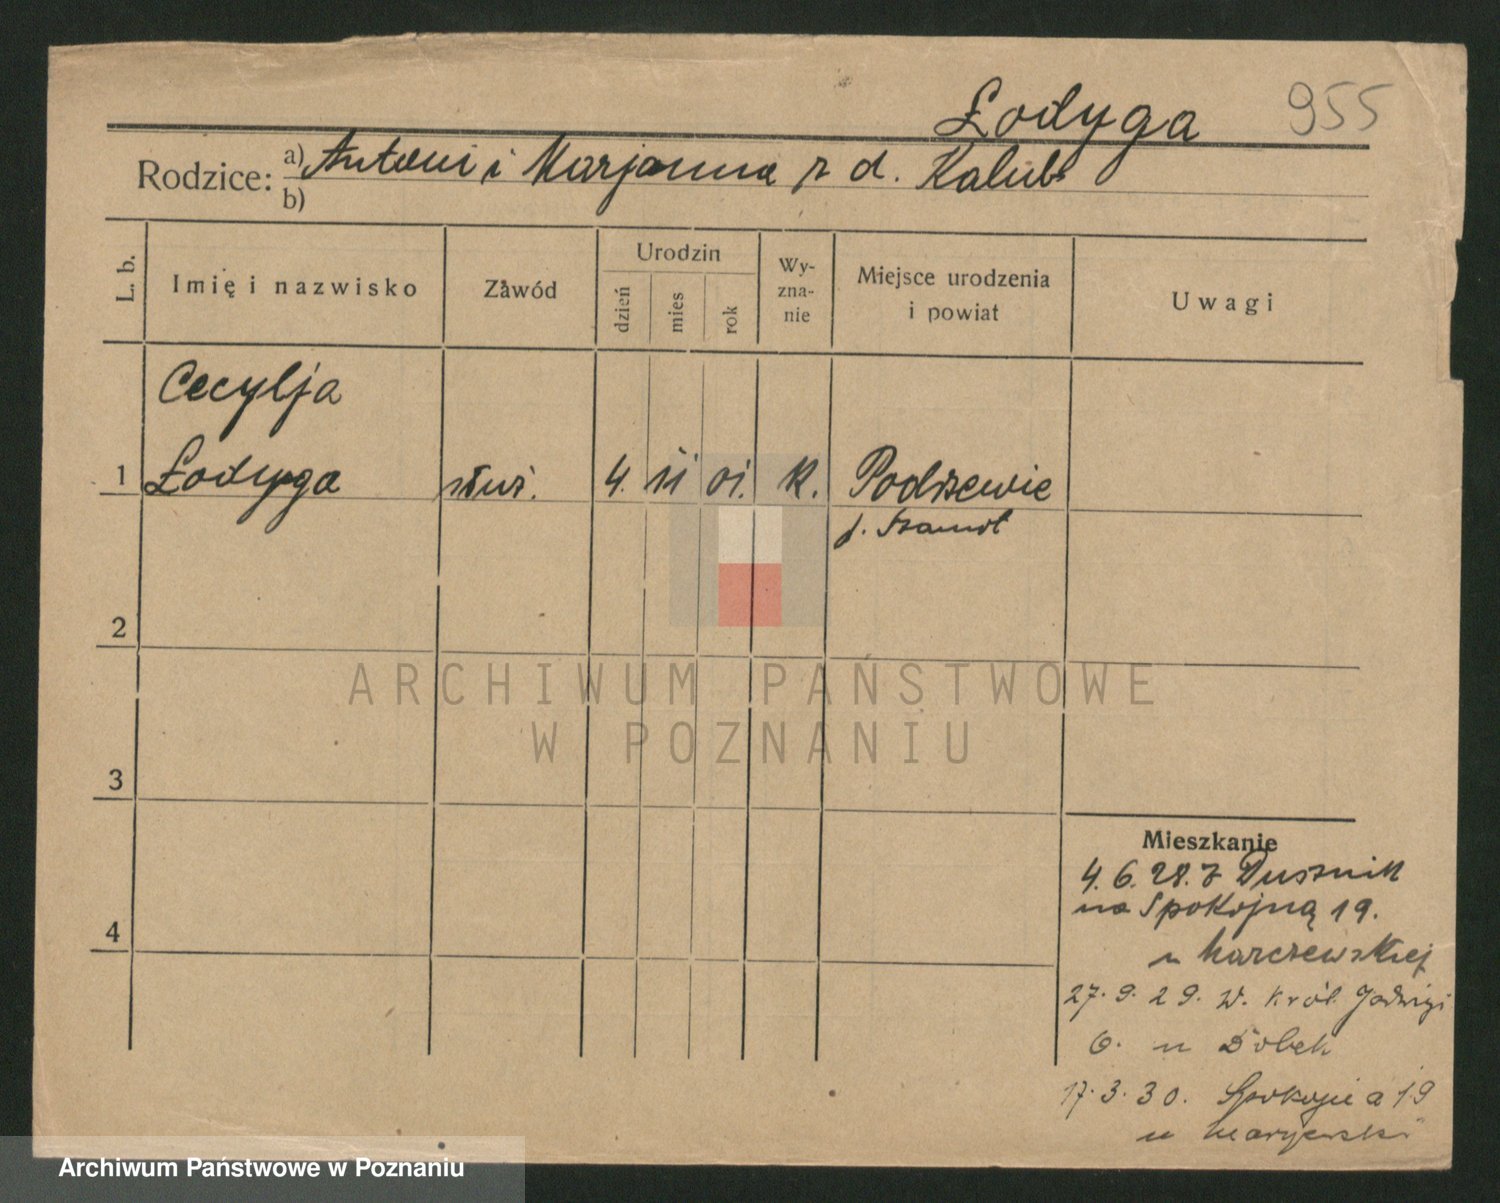 Łodyga 955
Rodzice: a) Antoni i Marjanna z d. Kalub
b)
L. b. Imię i nazwisko Zawód Urodzin dzień mies rok Wy-zna-nie Miejsce urodzenia i powiat Uwagi
Cecylja
1 Łodyga służ. 4. 11 01. k. Podrzewie
p. Szamot
2
ARCHIWUM PAŃSTWOWE
W POZNANIU
3
Mieszkanie
4. 6. 28. z Dusznik
na Spokojną 19.
4
u Marczewskiej
27. 9. 29. W. Król. Jadwigi
6. u Dobek
17. 3. 30. Spokojna 19
u
Archiwum Państwowe w Poznaniu